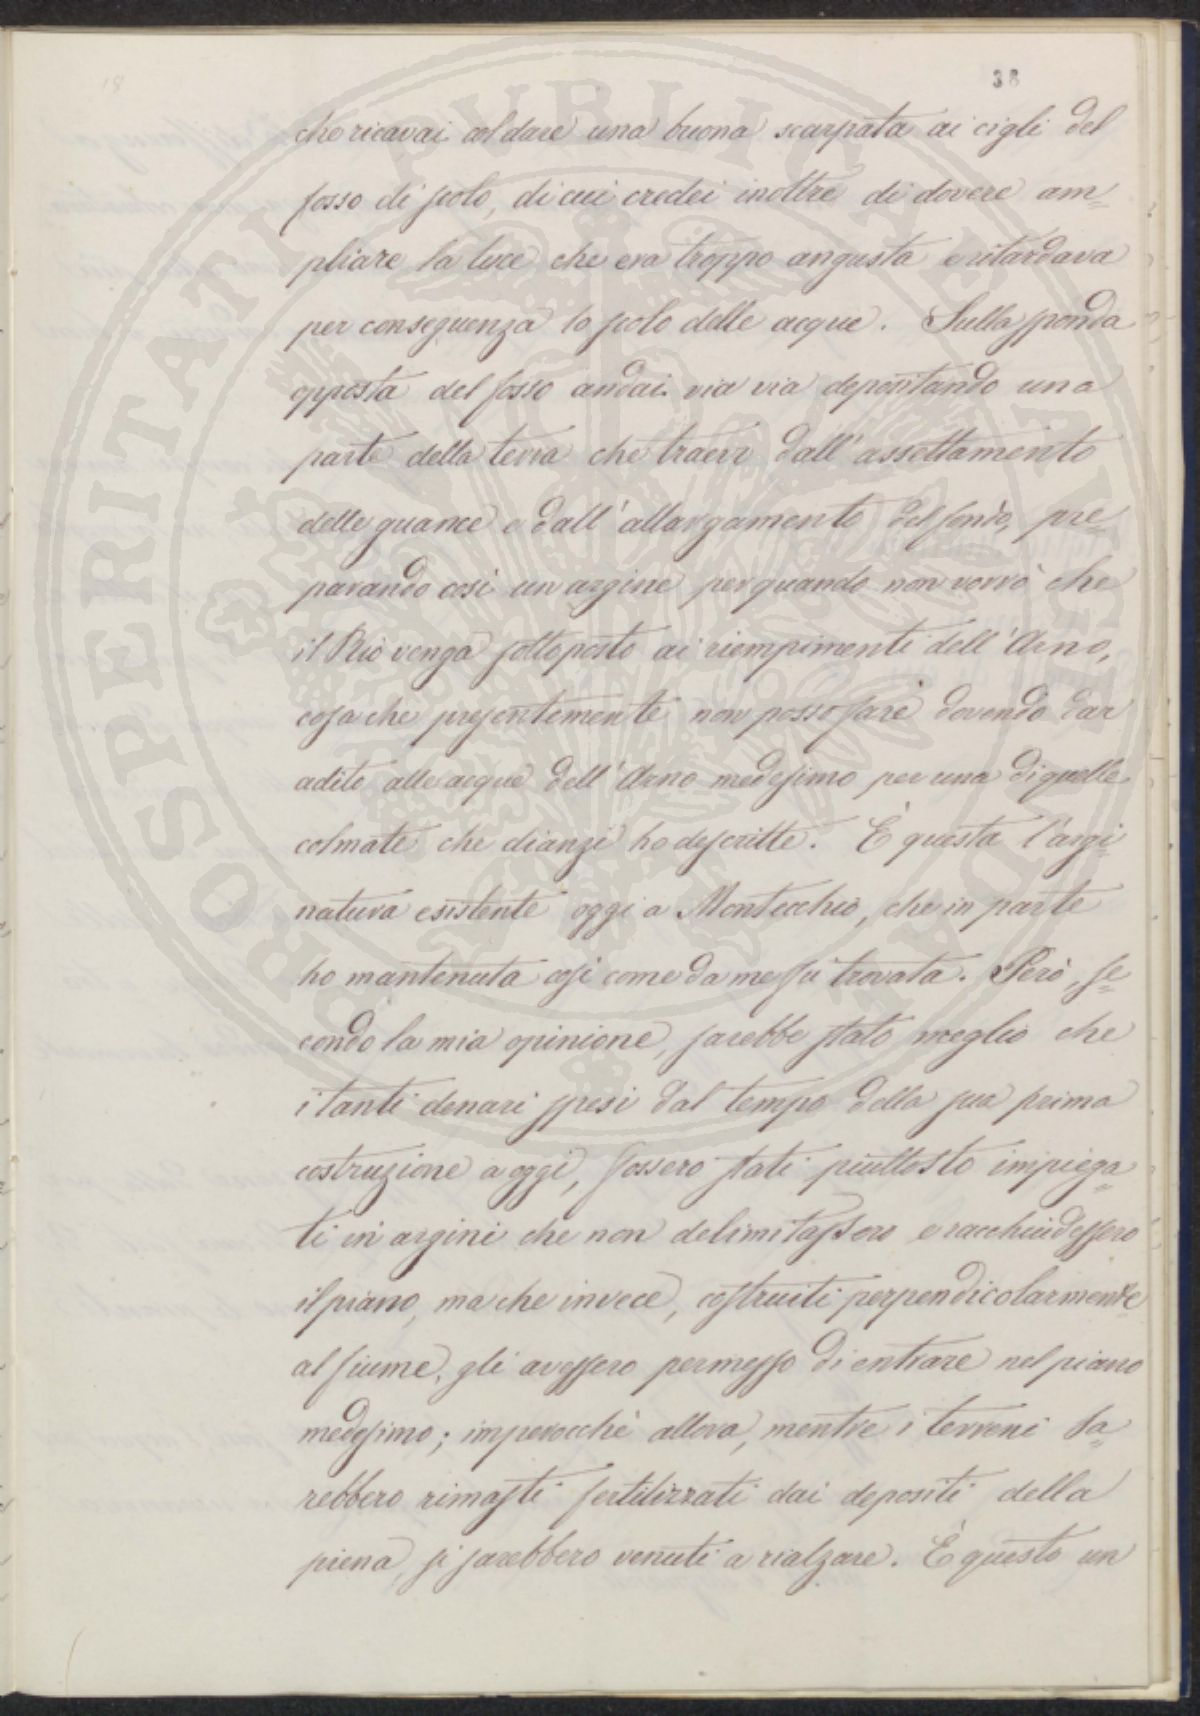 38
che ricavai col dare una buona scarpata ai cigli del
fosso di scolo, di cui credei inoltre di dovere am=
pliare la luce, che era troppo angusta e ritardava
per conseguenza lo scolo delle acque. Sulla sponda
opposta del fosso andai via via depositando una
parte della terra che traevo dall'assettamento
delle guance e dall'allargamento del fondo, pre=
parando così un argine per quando non vorrò che
il Rio venga sottoposto ai riempimenti dell'Arno,
cosa che presentemente non posso fare dovendo dar
adito alle acque dell'Arno medesimo per una di quelle
colmate che dianzi ho descritte. È questa l'argi=
natura esistente oggi a Montecchio, che in parte
ho mantenuta così come da me fu trovata. Però, se=
condo la mia opinione, sarebbe stato meglio che
i tanti denari spesi dal tempo della sua prima
costruzione a oggi, fossero stati piuttosto impiega=
ti in argini che non delimitassero e racchiudessero
il piano, ma che invece, costruiti perpendicolarmente
al fiume, gli avessero permesso di entrare nel piano
medesimo; imperocchè allora, mentre i terreni sa=
rebbero rimasti fertilizzati dai depositi della
piena, si sarebbero venuti a rialzare. È questo un
PROSPERITATI PVBLICAE AVGENDAE